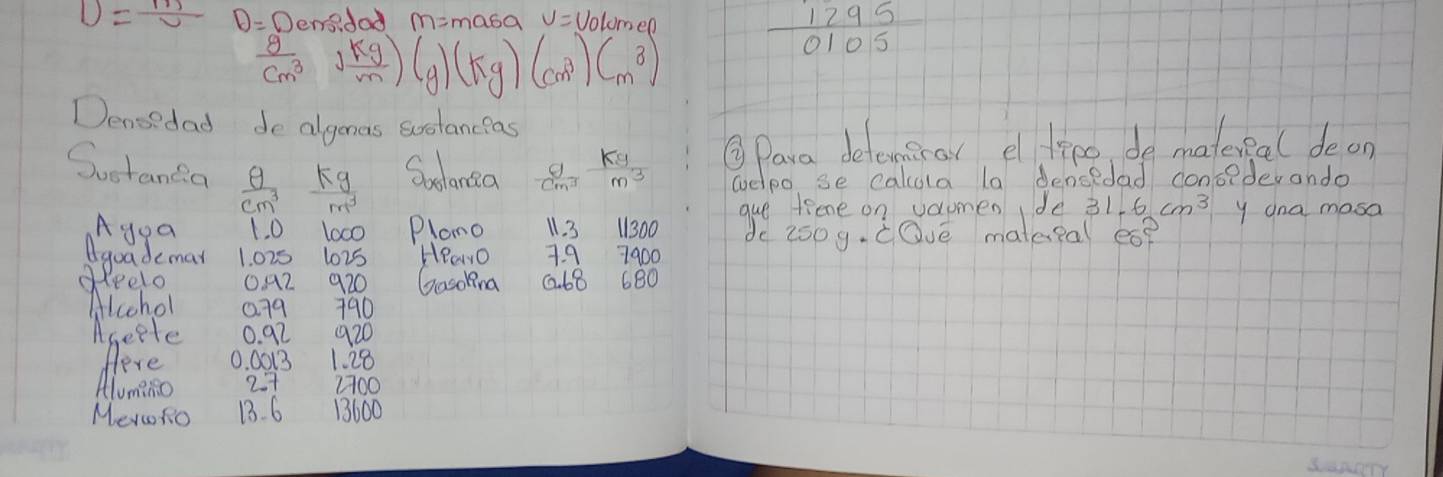 D = m/v D=Densidad m=masa v=Volumen
g/cm³ , kg/m ) (g) (kg) (cm³) (m³)
Densidad de algunas sustancias
Sustancia g/cm³ kg/m³ Sustancia g/cm³ kg/m³
Agua 1.0 1000 Plomo 11.3 11300
Agua de mar 1.025 1025 Hierro 7.9 7900
Hielo 0.92 920 Gasolina 0.68 680
Alcohol 0.79 790
Aceite 0.92 920
Aire 0.0013 1.28
Aluminio 2.7 2700
Mercurio 13.6 13600
1295
0105
② Para determinar el tipo de material de un
cuerpo se calcula la densidad considerando
que tiene un volumen de 31.6 cm³ y una masa
de 250 g. ¿Qué material es?